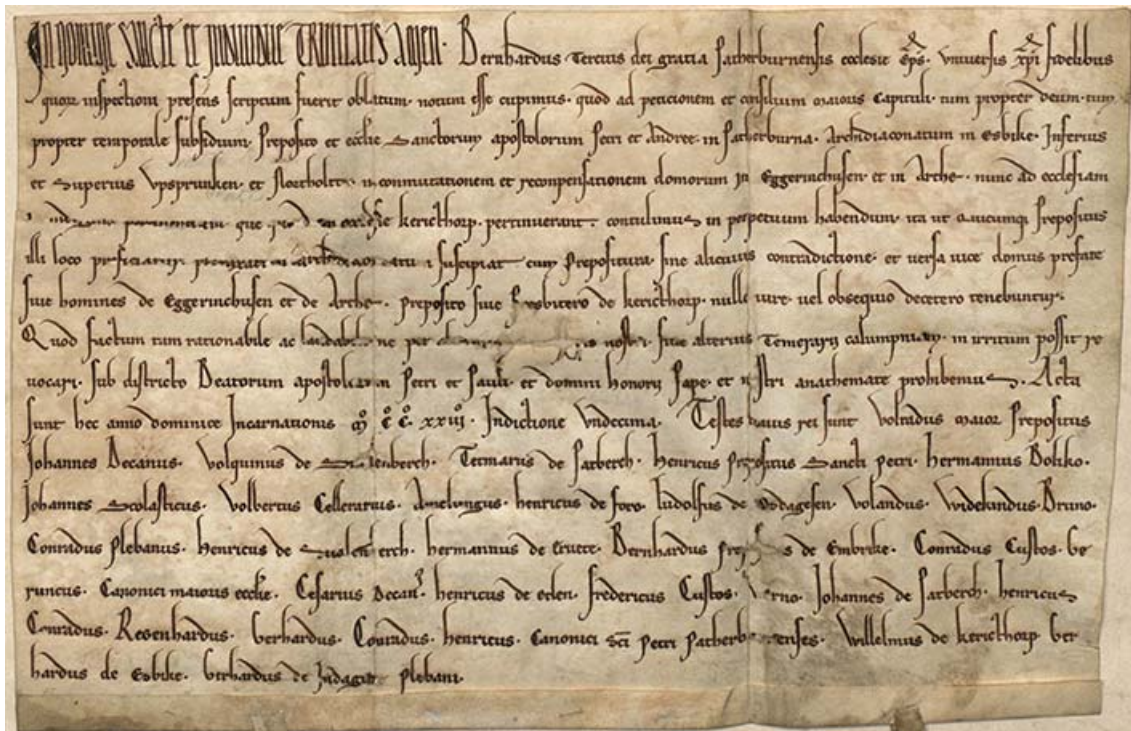 In nomine sancte et individue trinitatis amen. Bernhardus Tercius dei gratia Patherburnensis ecclesie eps. universis xpi fidelibus
quor inspectioni presens scriptum fuerit oblatum. notum esse cupimus. quod ad peticionem et consilium maioris Capituli. tum propter deum. tum
propter temporale subsidium. Preposito et ecclie Sanctorum apostolorum Petri et Andree in Patherburna. Archidiaconatum in Esbike. Inferius
et Superius Upsprunken. et Northolte. in conmutationem et reconpensationem domorum in Eggerinchusen. et in Arche. nunc ad ecclesiam
que kericthorp. pertinuerant. contulimus in perpetuum habendum. ita ut quicumq Prepositus
illi loco prefuerit suscipiat cum Prepositura. sine alicuius contradictione. et versa vice domus prefate
sive homines de Eggerinchusen et de Arche. preposito sive Presbitero de kericthorp. nullo iure vel obsequio decetero tenebuntur.
Quod factum tam rationabile ac laudabile ne per nostri. sive alterius Temerarii calumpniam. in irritum possit re
vocari. sub districto Beatorum apostolorum Petri et Pauli. et domini honorii Pape. et nostri anathemate prohibemus. Acta
sunt hec anno dominice Incarnationis M. CC. XXIII. Indictione Undecima. Testes huius rei sunt Volradus maior Prepositus
Johannes Decanus. Volquinus de Tetmarus de Patberch. Henricus Prepositus Sancti Petri. hermannus
Johannes Scolasticus. Volbertus Cellerarius. Amelungus. henricus de foro. Ludolfus de Volandus. Widekindus. Bruno.
Conradus Plebanus. Henricus de hermannus de Bernhardus de Embrike. Conradus Custos. be
runcus. Canonici maioris ecclie. Cesarius Decan. henricus de fredericus Custos. Johannes de Patberch. henricus
Conradus. Resenhardus. Gerhardus. Conradus. henricus. Canonici sci Petri Patherburnenses. Willelmus de kericthorp Ber
hardus de Esbike. Gerhardus de Indagine Plebani.